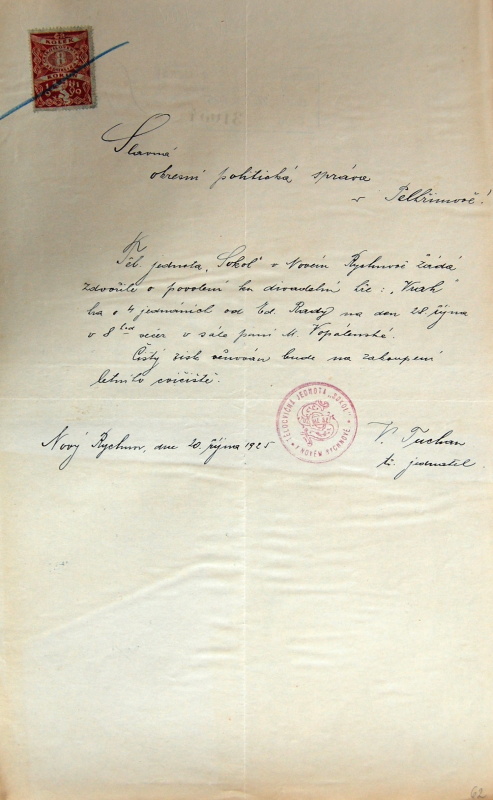 KOLEK
8
Slavná
okresní politická správa
v Pelhřimově!
Těl. jednota „Sokol" v Novém Rychnově žádá
zdvořile o povolení ku divadelní hře: „Vrah"
hra o 4 jednáních od Ed. Rady na den 28. října
v 8 hod večer v sále paní M. Vopálenské.
Čistý zisk věnován bude na zakoupení
letního cvičiště.
TĚLOCVIČNÁ JEDNOTA „SOKOL"
V NOVÉM RYCHNOVĚ
Nový Rychnov, dne 20. října 1925
V. Tuchan
tč. jednatel.
62